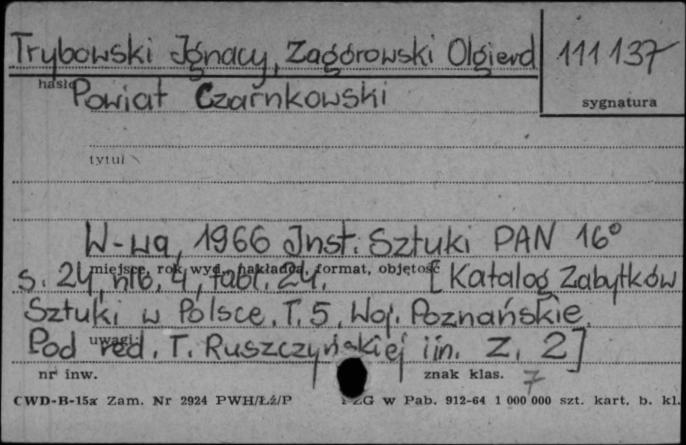 Trybowski Ignacy, Zagórowski Olgierd
111 137
hasło
Powiat Czarnkowski
sygnatura
tytuł
W-wa, 1966 Inst. Sztuki PAN 16°
miejsce, rok wyd., nakładca, format, objętość
s. 24, nlb. 4, tabl. 24. [Katalog Zabytków
Sztuki w Polsce. T. 5, Woj. Poznańskie.
uwagi:
Pod red. T. Ruszczyńskiej i in. Z. 2]
nr inw.
znak klas. 7
CWD-B-15a Zam. Nr 2924 PWH/Łź/P
PZG w Pab. 912-64 1 000 000 szt. kart. b. kl.